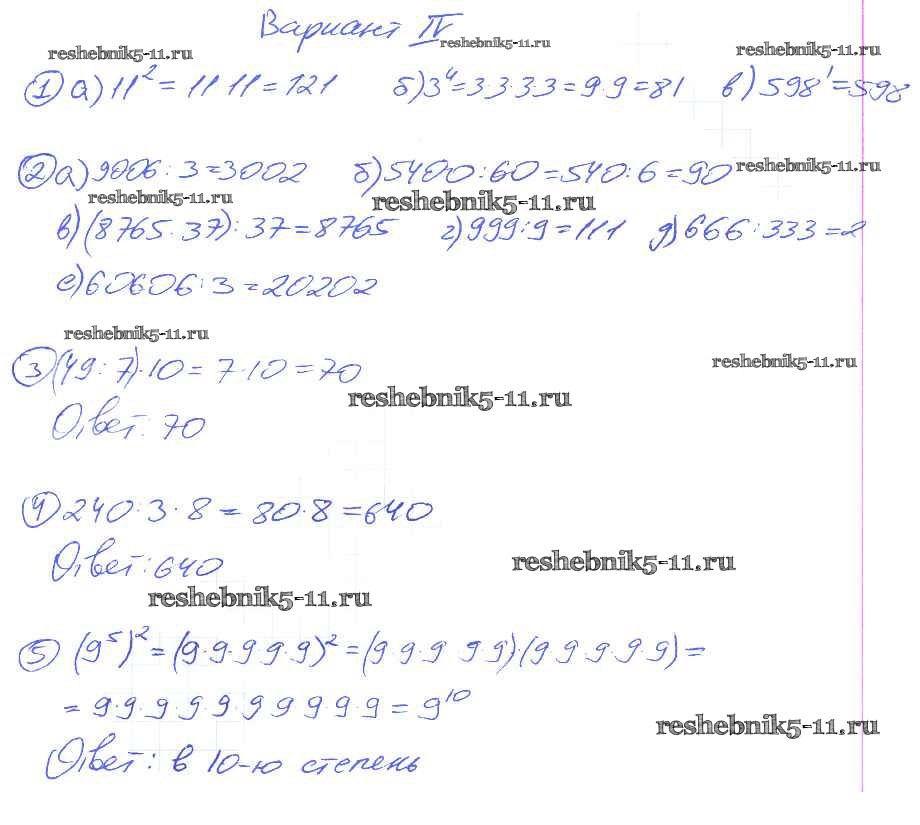 Вариант IV
reshebnik5-11.ru reshebnik5-11.ru reshebnik5-11.ru
1 а) 11² = 11 11 = 121 б) 3⁴ = 3·3·3·3 = 9·9 = 81 в) 598¹ = 598
2 а) 9006 : 3 = 3002 б) 5400 : 60 = 540 : 6 = 90 reshebnik5-11.ru
reshebnik5-11.ru reshebnik5-11.ru
в) (8765·37) : 37 = 8765 г) 999 : 9 = 111 д) 666 : 333 = 2
е) 60606 : 3 = 20202
reshebnik5-11.ru
3 (49 : 7)·10 = 7·10 = 70 reshebnik5-11.ru
reshebnik5-11.ru
Ответ: 70
4) 240 : 3 · 8 = 80·8 = 640
Ответ: 640 reshebnik5-11.ru
reshebnik5-11.ru
5 (9⁵)² = (9·9·9·9·9)² = (9 9·9 9 9)·(9 9 9·9·9) =
= 9·9·9·9·9·9 9 9·9·9 = 9¹⁰
reshebnik5-11.ru
Ответ: в 10-ю степень